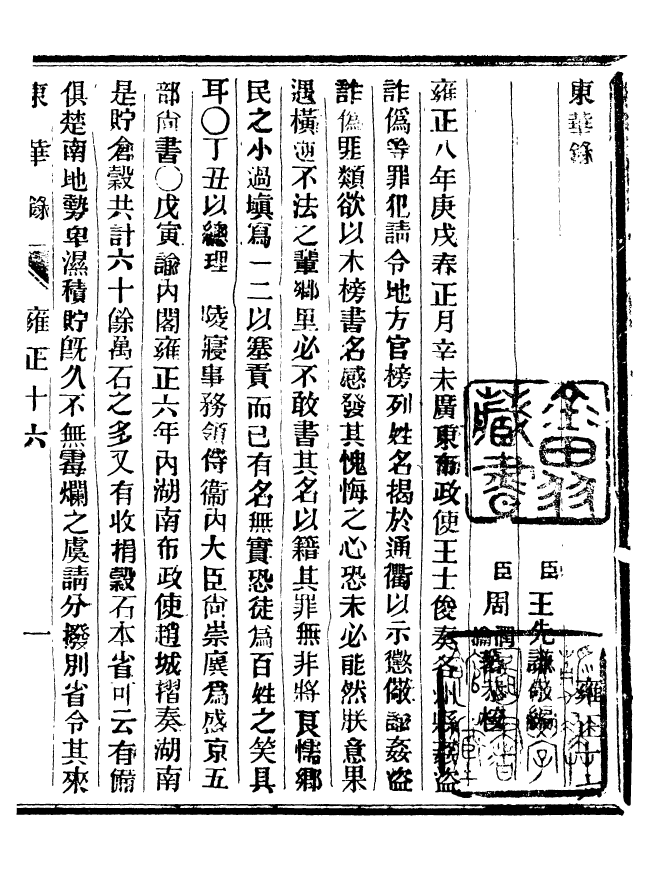 東華錄
雍正十六
臣王先謙敬編
臣周潤蕃恭校
雍正八年庚戌春正月辛未廣東布政使王士俊奏各州縣姦盜
詐僞等罪犯請令地方官榜列姓名揭於通衢以示懲儆諭姦盜
詐僞匪類欲以木榜書名感發其愧悔之心恐未必能然朕意果
遇橫逆不法之輩鄉里必不敢書其名以籍其罪無非將良懦鄉
民之小過塡寫一二以塞責而已有名無實恐徒爲百姓之笑具
耳〇丁丑以總理 陵寢事務領侍衞內大臣尙崇廙爲盛京五
部尙書〇戊寅諭內閣雍正六年內湖南布政使趙城摺奏湖南
是貯倉穀共計六十餘萬石之多又有收捐穀石本省可云有備
俱楚南地勢卑濕積貯旣久不無霉爛之虞請分撥別省令其來
東華錄 雍正十六 一